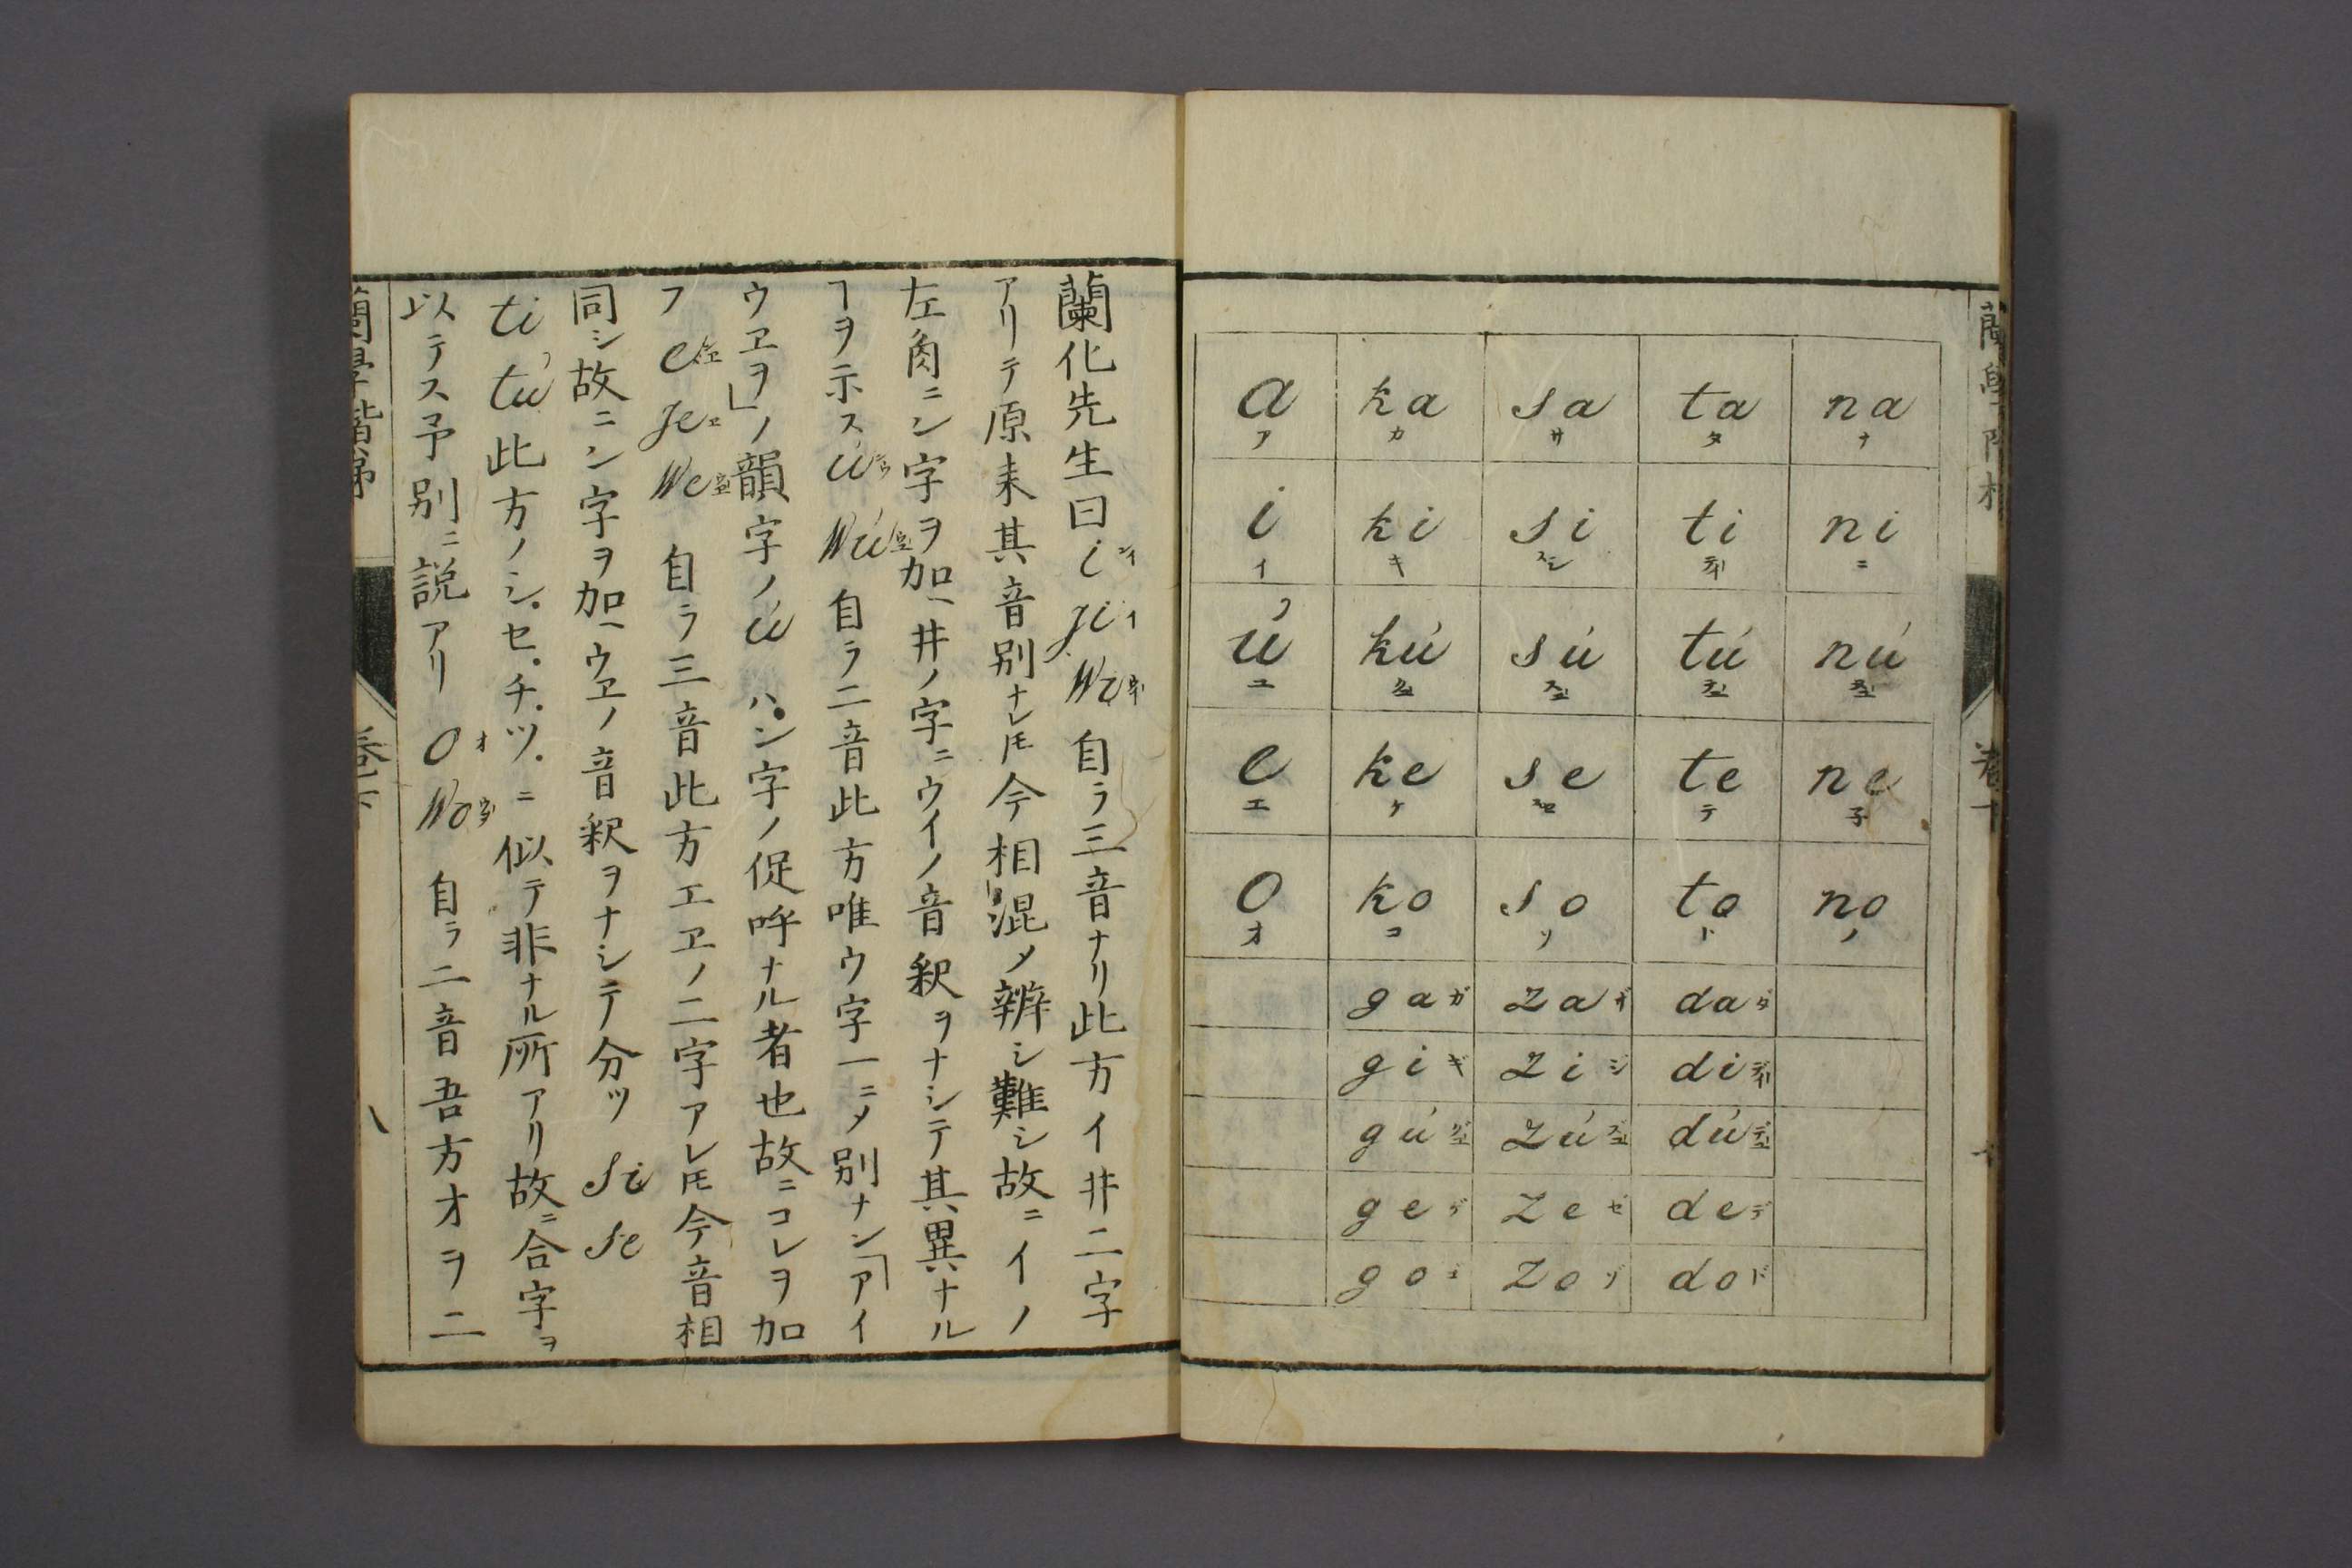 a ka sa ta na
ア カ サ タ ナ
i ki si ti ni
イ キ スシ テイ ニ
ú kú sú tú nú
ユ クユ スユ テユ ヌユ
e ke se te ne
エ ケ スセ テ 子
o ko so to no
オ コ ソ ト ノ
gaガ zaザ daダ
giギ ziジ diディ
gúグユ zúズユ dúデユ
geゲ zeゼ deデ
goゴ zoゾ doド
蘭化先生曰 i ji wi 自ラ三音ナリ此方イ井二字
アリテ原来其音別ナレ𪜈今相混メ辨シ難シ故ニイノ
左肉ニン字ヲ加ヘ井ノ字ニウイノ音釈ヲナシテ其異ナル
ヿヲ示ス ú wú 自ラ二音此方唯ウ字一ニメ別ナシ「アイ
ウヱヲ」ノ韻字ノ ú ハン字ノ促呼ナル者也故ニコレヲ加
フ e je we 自ラ三音此方エヱノ二字アレ𪜈今音相
同シ故ニン字ヲ加ヘウヱノ音釈ヲナシテ分ツ si se
ti tú 此方ノシ.セ.チ.ツ.ニ似テ非ナル所アリ故ニ合字ヲ
以テス予別ニ説アリ o wo 自ラ二音吾方オヲ二
蘭學階梯
巻下